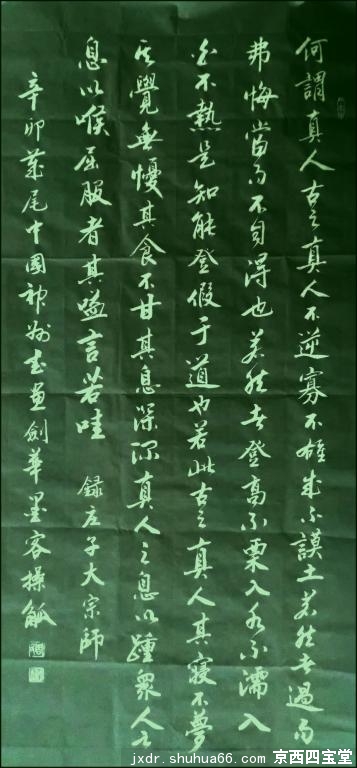 何謂真人古之真人不逆寡不雄成不謨士若然者過而
弗悔當而不自得也若然者登高不栗入水不濡入
火不熱是知能登假于道也若此古之真人其寢不夢
其覺無懮其食不甘其息深深真人之息以踵眾人之
息以喉屈服者其嗌言若哇 錄庄子大宗師
辛卯歲尾中國神州書畫劍華墨容操觚
jxdr.shuhua66.com 京西四宝堂